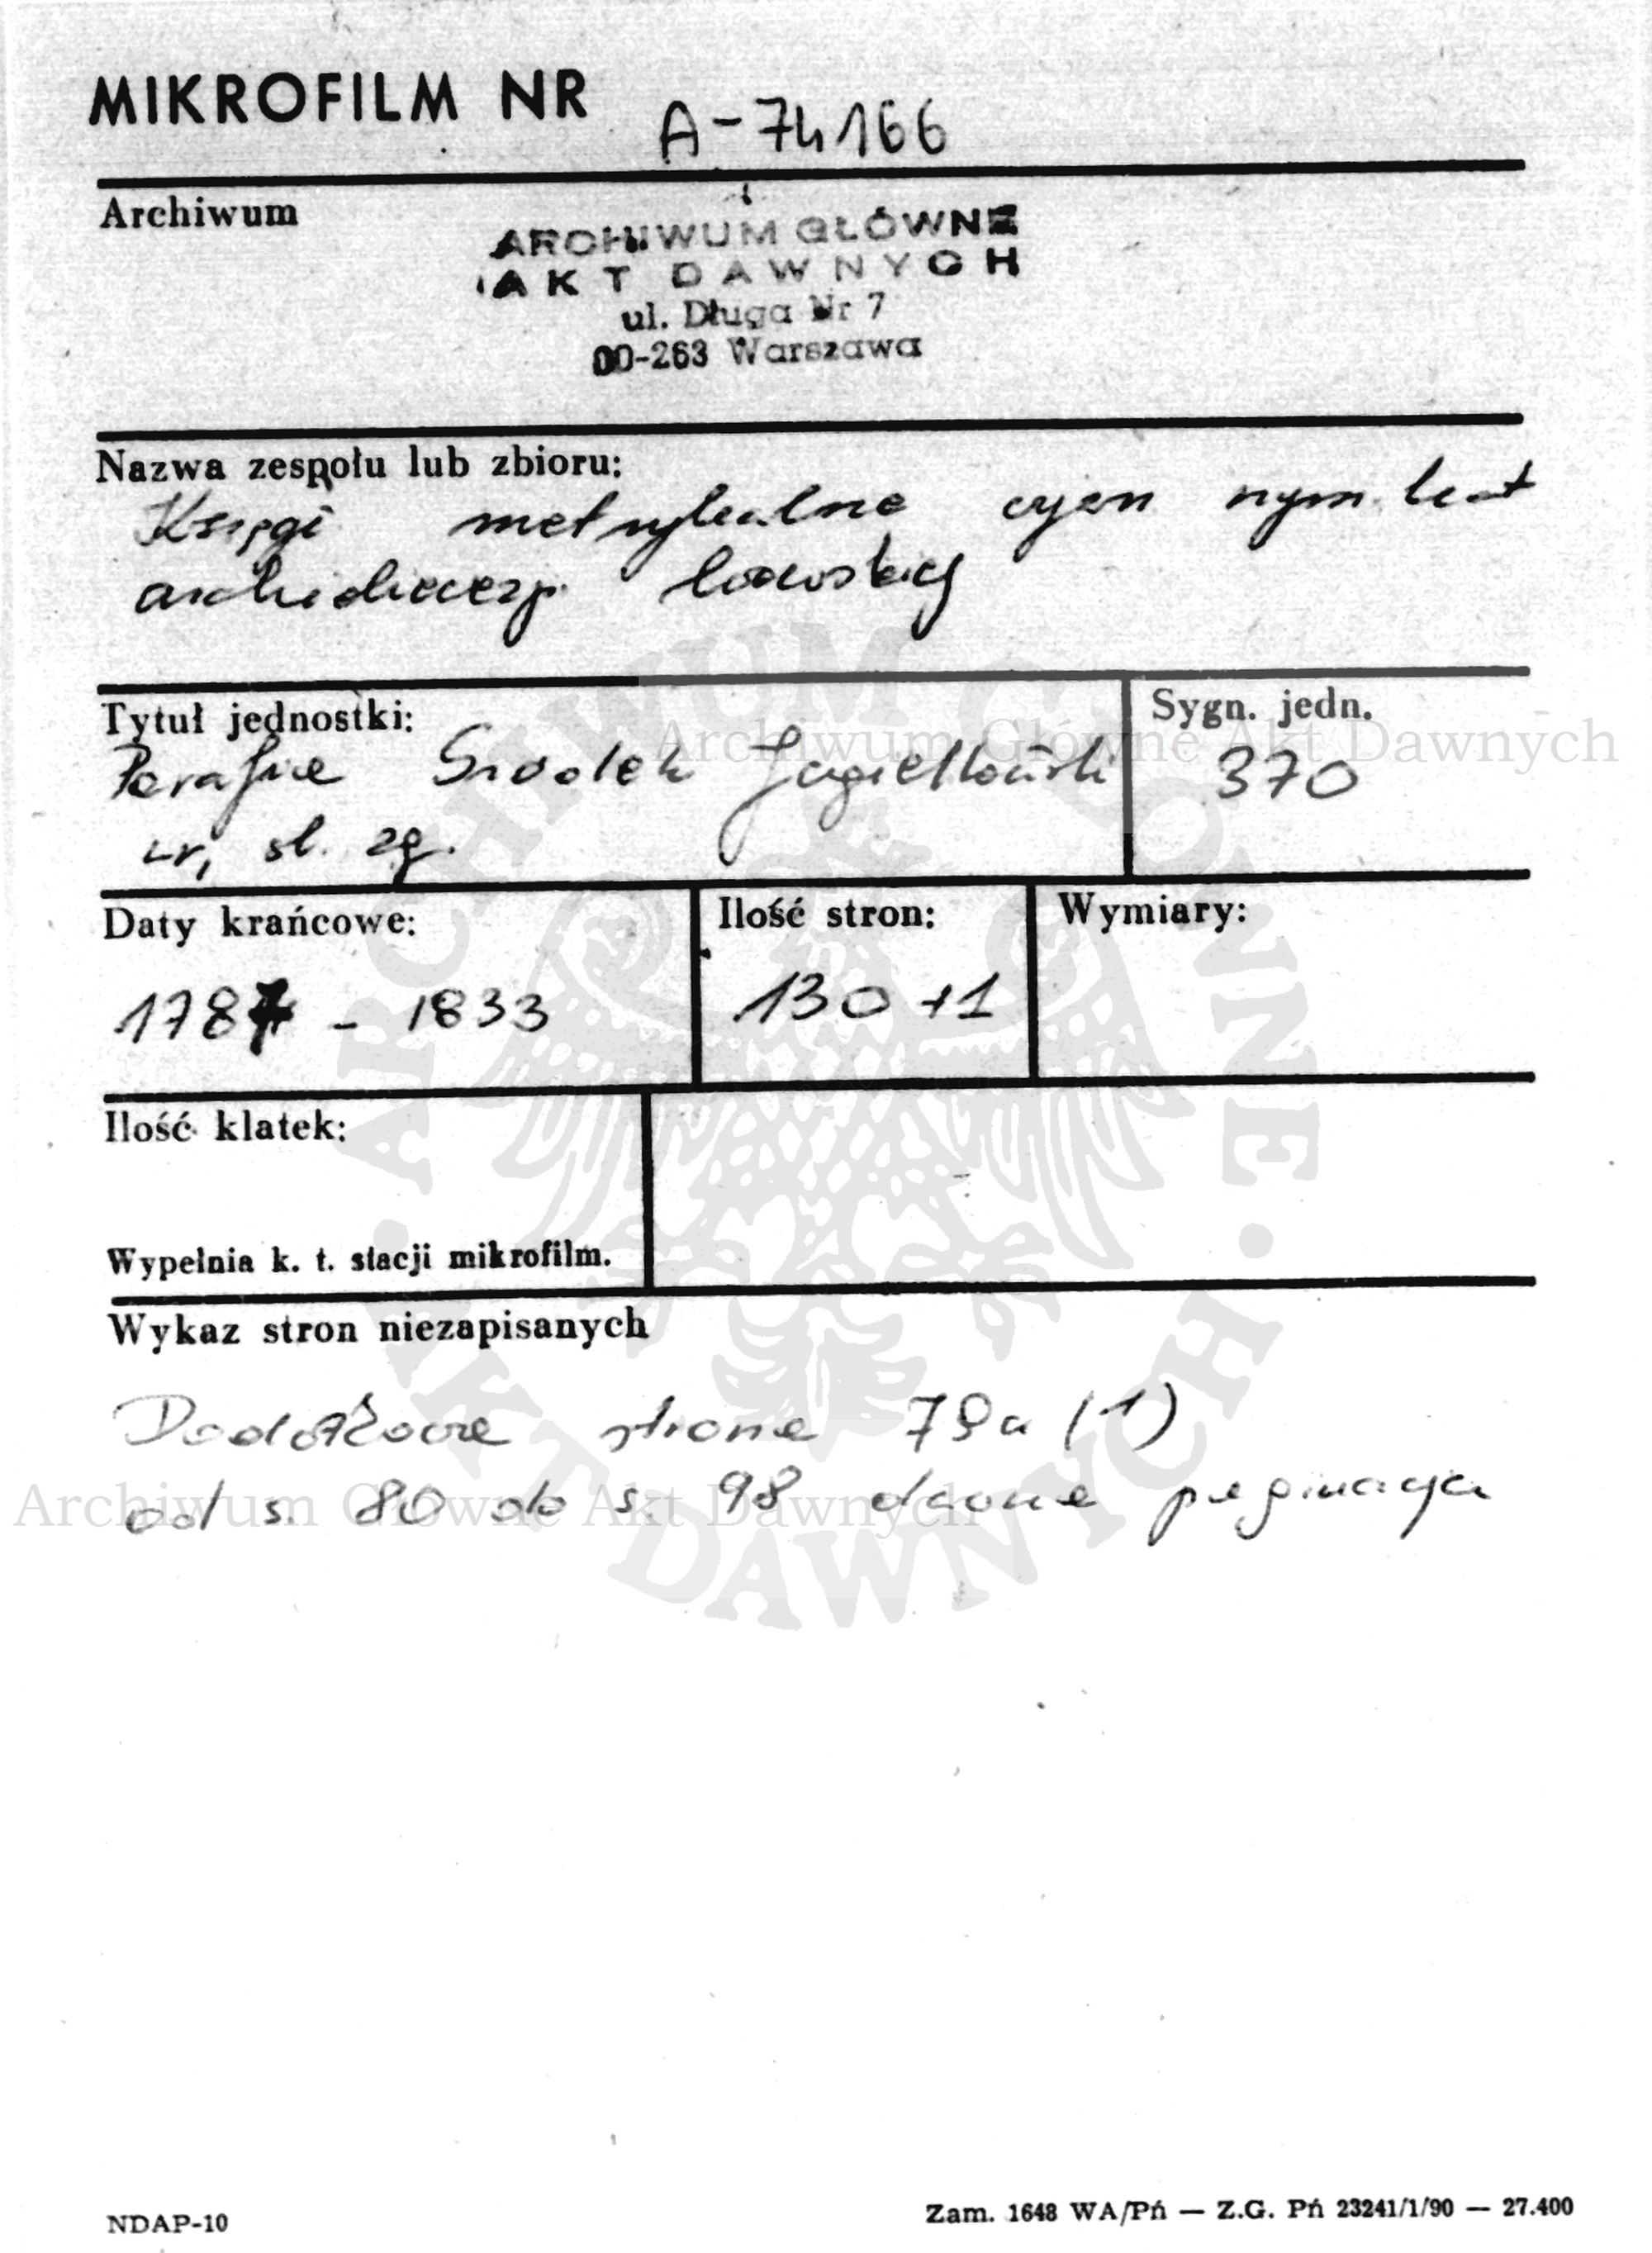 MIKROFILM NR A-74166
Archiwum
ARCHIWUM GŁÓWNE
AKT DAWNYCH
ul. Długa Nr 7
00-263 Warszawa
Nazwa zespołu lub zbioru:
Księgi metrykalne rzym kat
archidiecezji lwowskiej
Tytuł jednostki:
Sygn. jedn.
Parafia Gródek Jagielloński
370
ur, śl. zg.
Daty krańcowe:
Ilość stron:
Wymiary:
1787 - 1833
130 +1
Ilość klatek:
Wypełnia k. t. stacji mikrofilm.
Wykaz stron niezapisanych
Dodatkowe strona 79a (1)
od s. 80 do s. 98 dawna paginacja
Archiwum Główne Akt Dawnych
Archiwum Główne Akt Dawnych
ARCHIWUM GŁÓWNE · AKT DAWNYCH ·
NDAP-10
Zam. 1648 WA/Pń — Z.G. Pń 23241/1/90 — 27.400